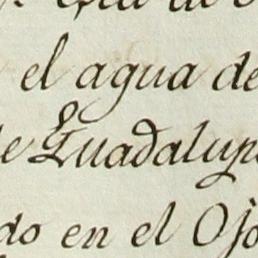 el agua de
de Guadalupe
do en el Ojo